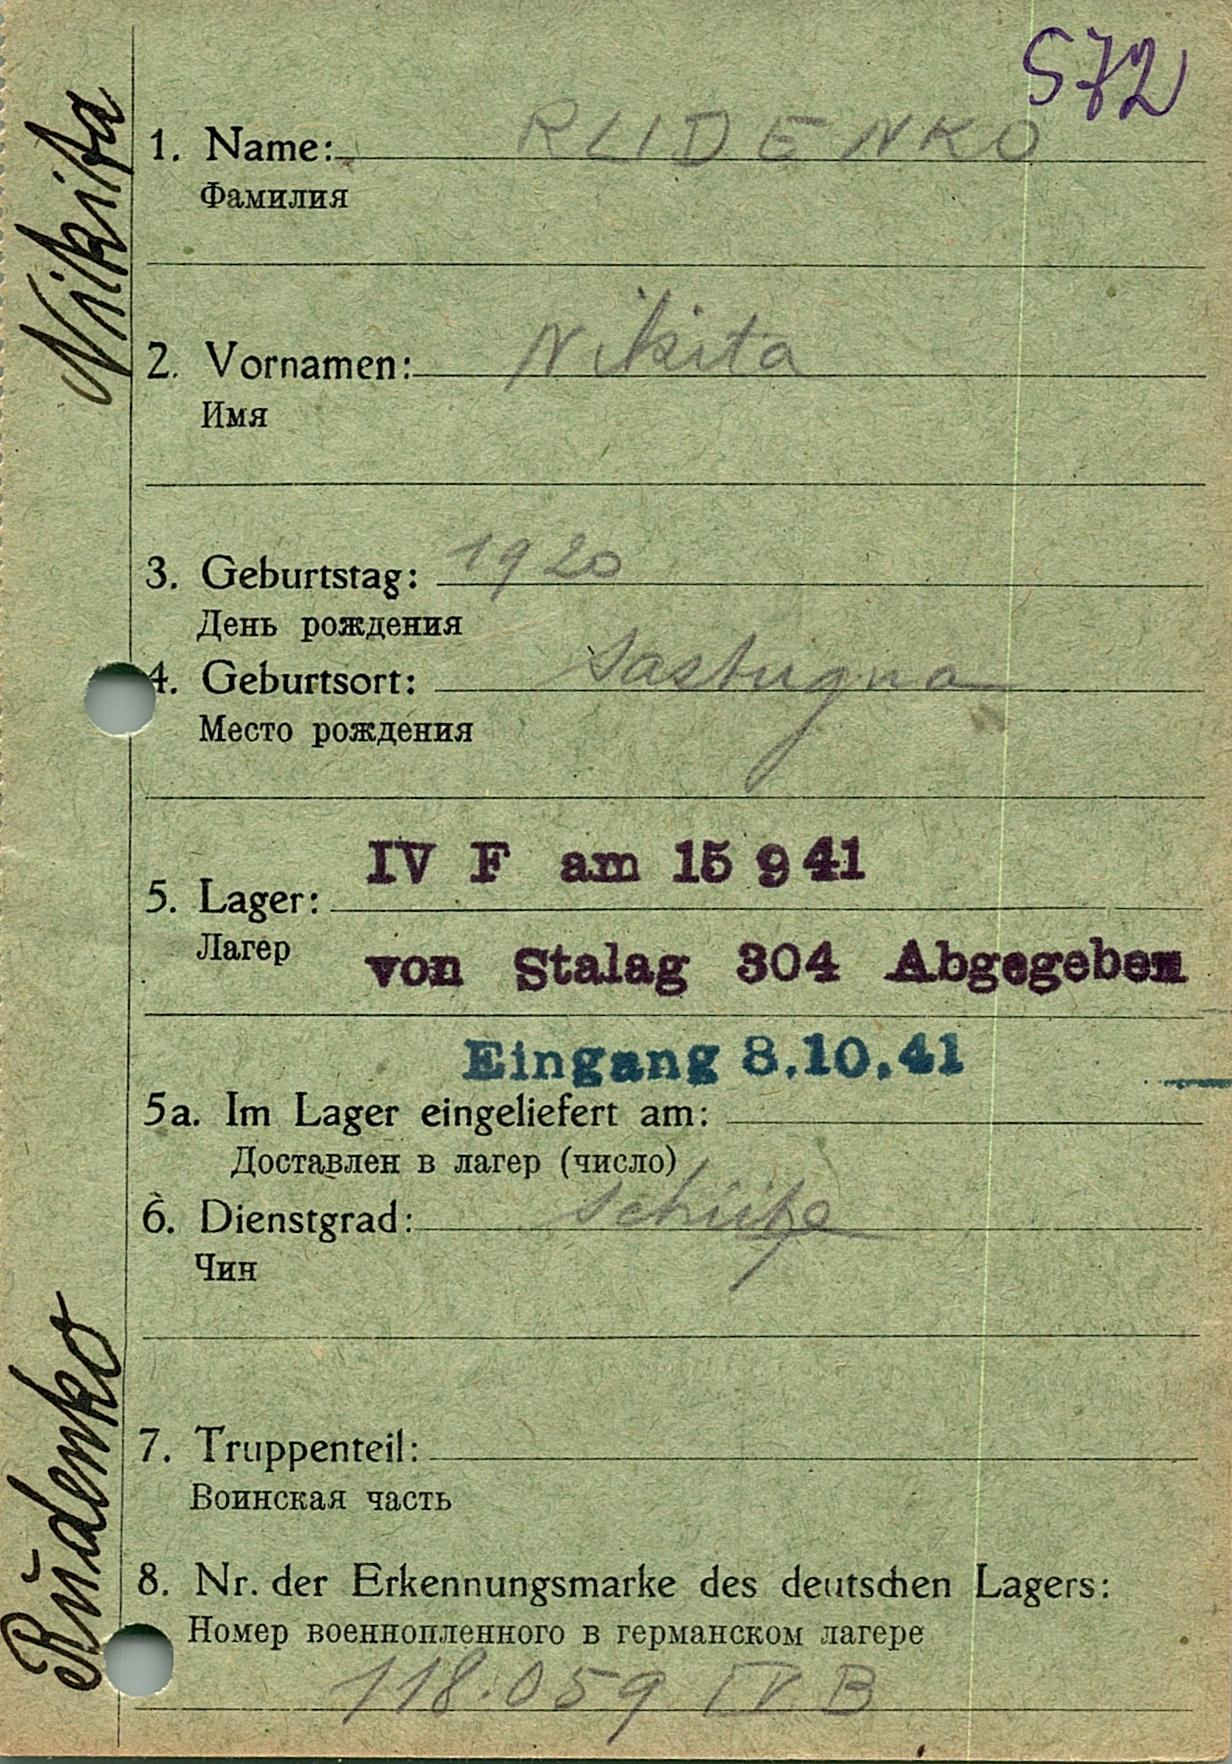 572
1. Name: RUDENKO
Фамилия
2. Vornamen: Nikita
Имя
3. Geburtstag: 1920
День рождения
4. Geburtsort: Sastugna
Место рождения
IV F am 15 9 41
5. Lager:
Лагер
von Stalag 304 Abgegeben
Eingang 8.10.41
5a. Im Lager eingeliefert am:
Доставлен в лагер (число)
6. Dienstgrad: Schütze
Чин
7. Truppenteil:
Воинская часть
8. Nr. der Erkennungsmarke des deutschen Lagers:
Номер военнопленного в германском лагере
118.059 IV B
Rŭdenko Nikita